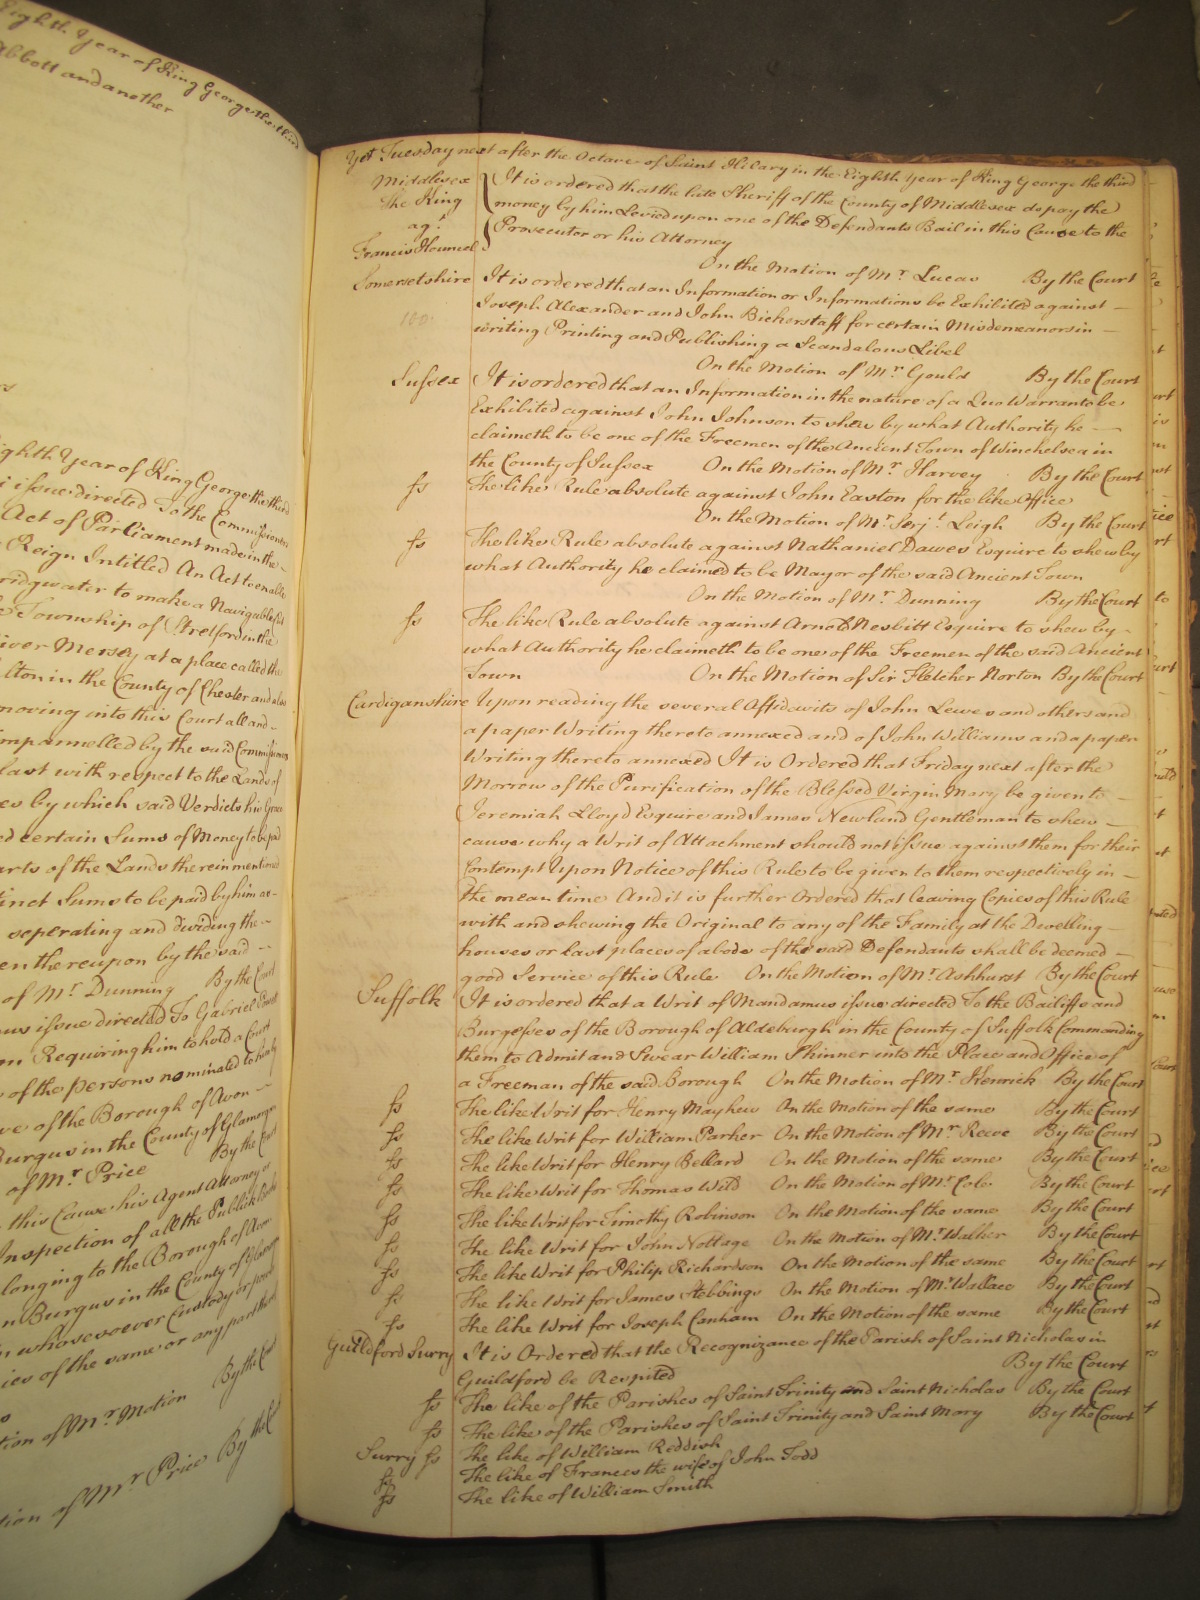 Eighth Year of King George the third
Abbott and another
ighth Year of King George the third
issue directed To the Commissioners
Act of Parliament made in the
Reign Intitled An Act to enable
ridgwater to make a Navigable
Township of Stretford in the
iver Mersey at a place called the
lton in the County of Chester and also
moving into this Court all and
impannelled by the said Commissioners
last with respect to the Lands of
es by which said Verdicts his Grace
ed certain Sums of Money to be paid
arts of the Lands therein mentioned
inct Sums to be paid by him as
seperating and dividing the
en thereupon by the said
of Mr Dunning By the Court
us issue directed To Gabriel Powell
Requiring him to hold a Court
of the persons nominated
ve of the Borough of Avon
Burgus in the County of Glamorgan
of Mr Price By the Court
this Cause his Agent Attorney or
Inspection of all the Publick Books
longing to the Borough of Avon
n Burgus in the County of Glamorgan
in whosesoever Custody or power
ies of the same or any part thereof
tion of Mr Morton By the Court
tion of Mr Price By the C
Yet Tuesday next after the Octave of Saint Hilary in the Eighth Year of King George the third
Middlesex It is ordered that the late Sheriff of the County of Middlesex do pay the
The King money by him Levied upon one of the Defendants Bail in this Cause to the
agt Prosecutor or his Attorney
Francis Hounsel
On the Motion of Mr Lucas By the Court
Somersetshire It is ordered that an Information or Informations be Exhibited against
Joseph Alexander and John Bickerstaff for certain Misdemeanors in
writing Printing and Publishing a Scandalous Libel
On the Motion of Mr Gould By the Court
Sussex It is ordered that an Information in the nature of a Quo Warranto be
Exhibited against John Johnson to shew by what Authority he
claimeth to be one of the Freemen of the Ancient Town of Winchelsea in
the County of Sussex On the Motion of Mr Harvey By the Court
ss The like Rule absolute against John Easton for the like Office
On the Motion of Mr Serjt Leigh By the Court
ss The like Rule absolute against Nathaniel Dawes Esquire to shew by
what Authority he claimed to be Mayor of the said Ancient Town
On the Motion of Mr Dunning By the Court
ss The like Rule absolute against Arnold Nesbitt Esquire to shew by
what Authority he claimeth to be one of the Freemen of the said Ancient
Town On the Motion of Sir Fletcher Norton By the Court
Cardiganshire Upon reading the several Affidavits of John Lewes and others and
a paper Writing thereto annexed and of John Williams and a paper
Writing thereto annexed It is Ordered that Friday next after the
Morrow of the Purification of the Blessed Virgin Mary be given to
Jeremiah Lloyd Esquire and James Newland Gentleman to shew
cause why a Writ of Attachment should not issue against them for their
Contempt Upon Notice of this Rule to be given to them respectively in
the mean time And it is further Ordered that leaving Copies of this Rule
with and shewing the Original to any of the Family at the Dwelling
houses or last places of abode of the said Defendants shall be deemed
good Service of this Rule On the Motion of Mr Ashhurst By the Court
Suffolk It is ordered that a Writ of Mandamus issue directed To the Bailiffs and
Burgesses of the Borough of Aldeburgh in the County of Suffolk Commanding
them to Admit and Swear William Skinner into the Place and Office of
a Freeman of the said Borough On the Motion of Mr Kenrick By the Court
ss The like Writ for Henry Mayhew On the Motion of the same By the Court
ss The like Writ for William Parker On the Motion of Mr Reeve By the Court
ss The like Writ for Henry Bellard On the Motion of the same By the Court
ss The like Writ for Thomas Wild On the Motion of Mr Cole By the Court
ss The like Writ for Timothy Robinson On the Motion of the same By the Court
ss The like Writ for John Nottage On the Motion of Mr Walker By the Court
ss The like Writ for Philip Richardson On the Motion of the same By the Court
ss The like Writ for James Stebbings On the Motion of Mr Wallace By the Court
ss The like Writ for Joseph Canham On the Motion of the same By the Court
Guildford Surry It is Ordered that the Recognizance of the Parish of Saint Nicholas in
Guildford be Respited By the Court
ss The like of the Parishes of Saint Trinity and Saint Nicholas By the Court
ss The like of the Parishes of Saint Trinity and Saint Mary By the Court
Surry ss The like of William Reddish
ss The like of Frances the wife of John Todd
ss The like of William Smith